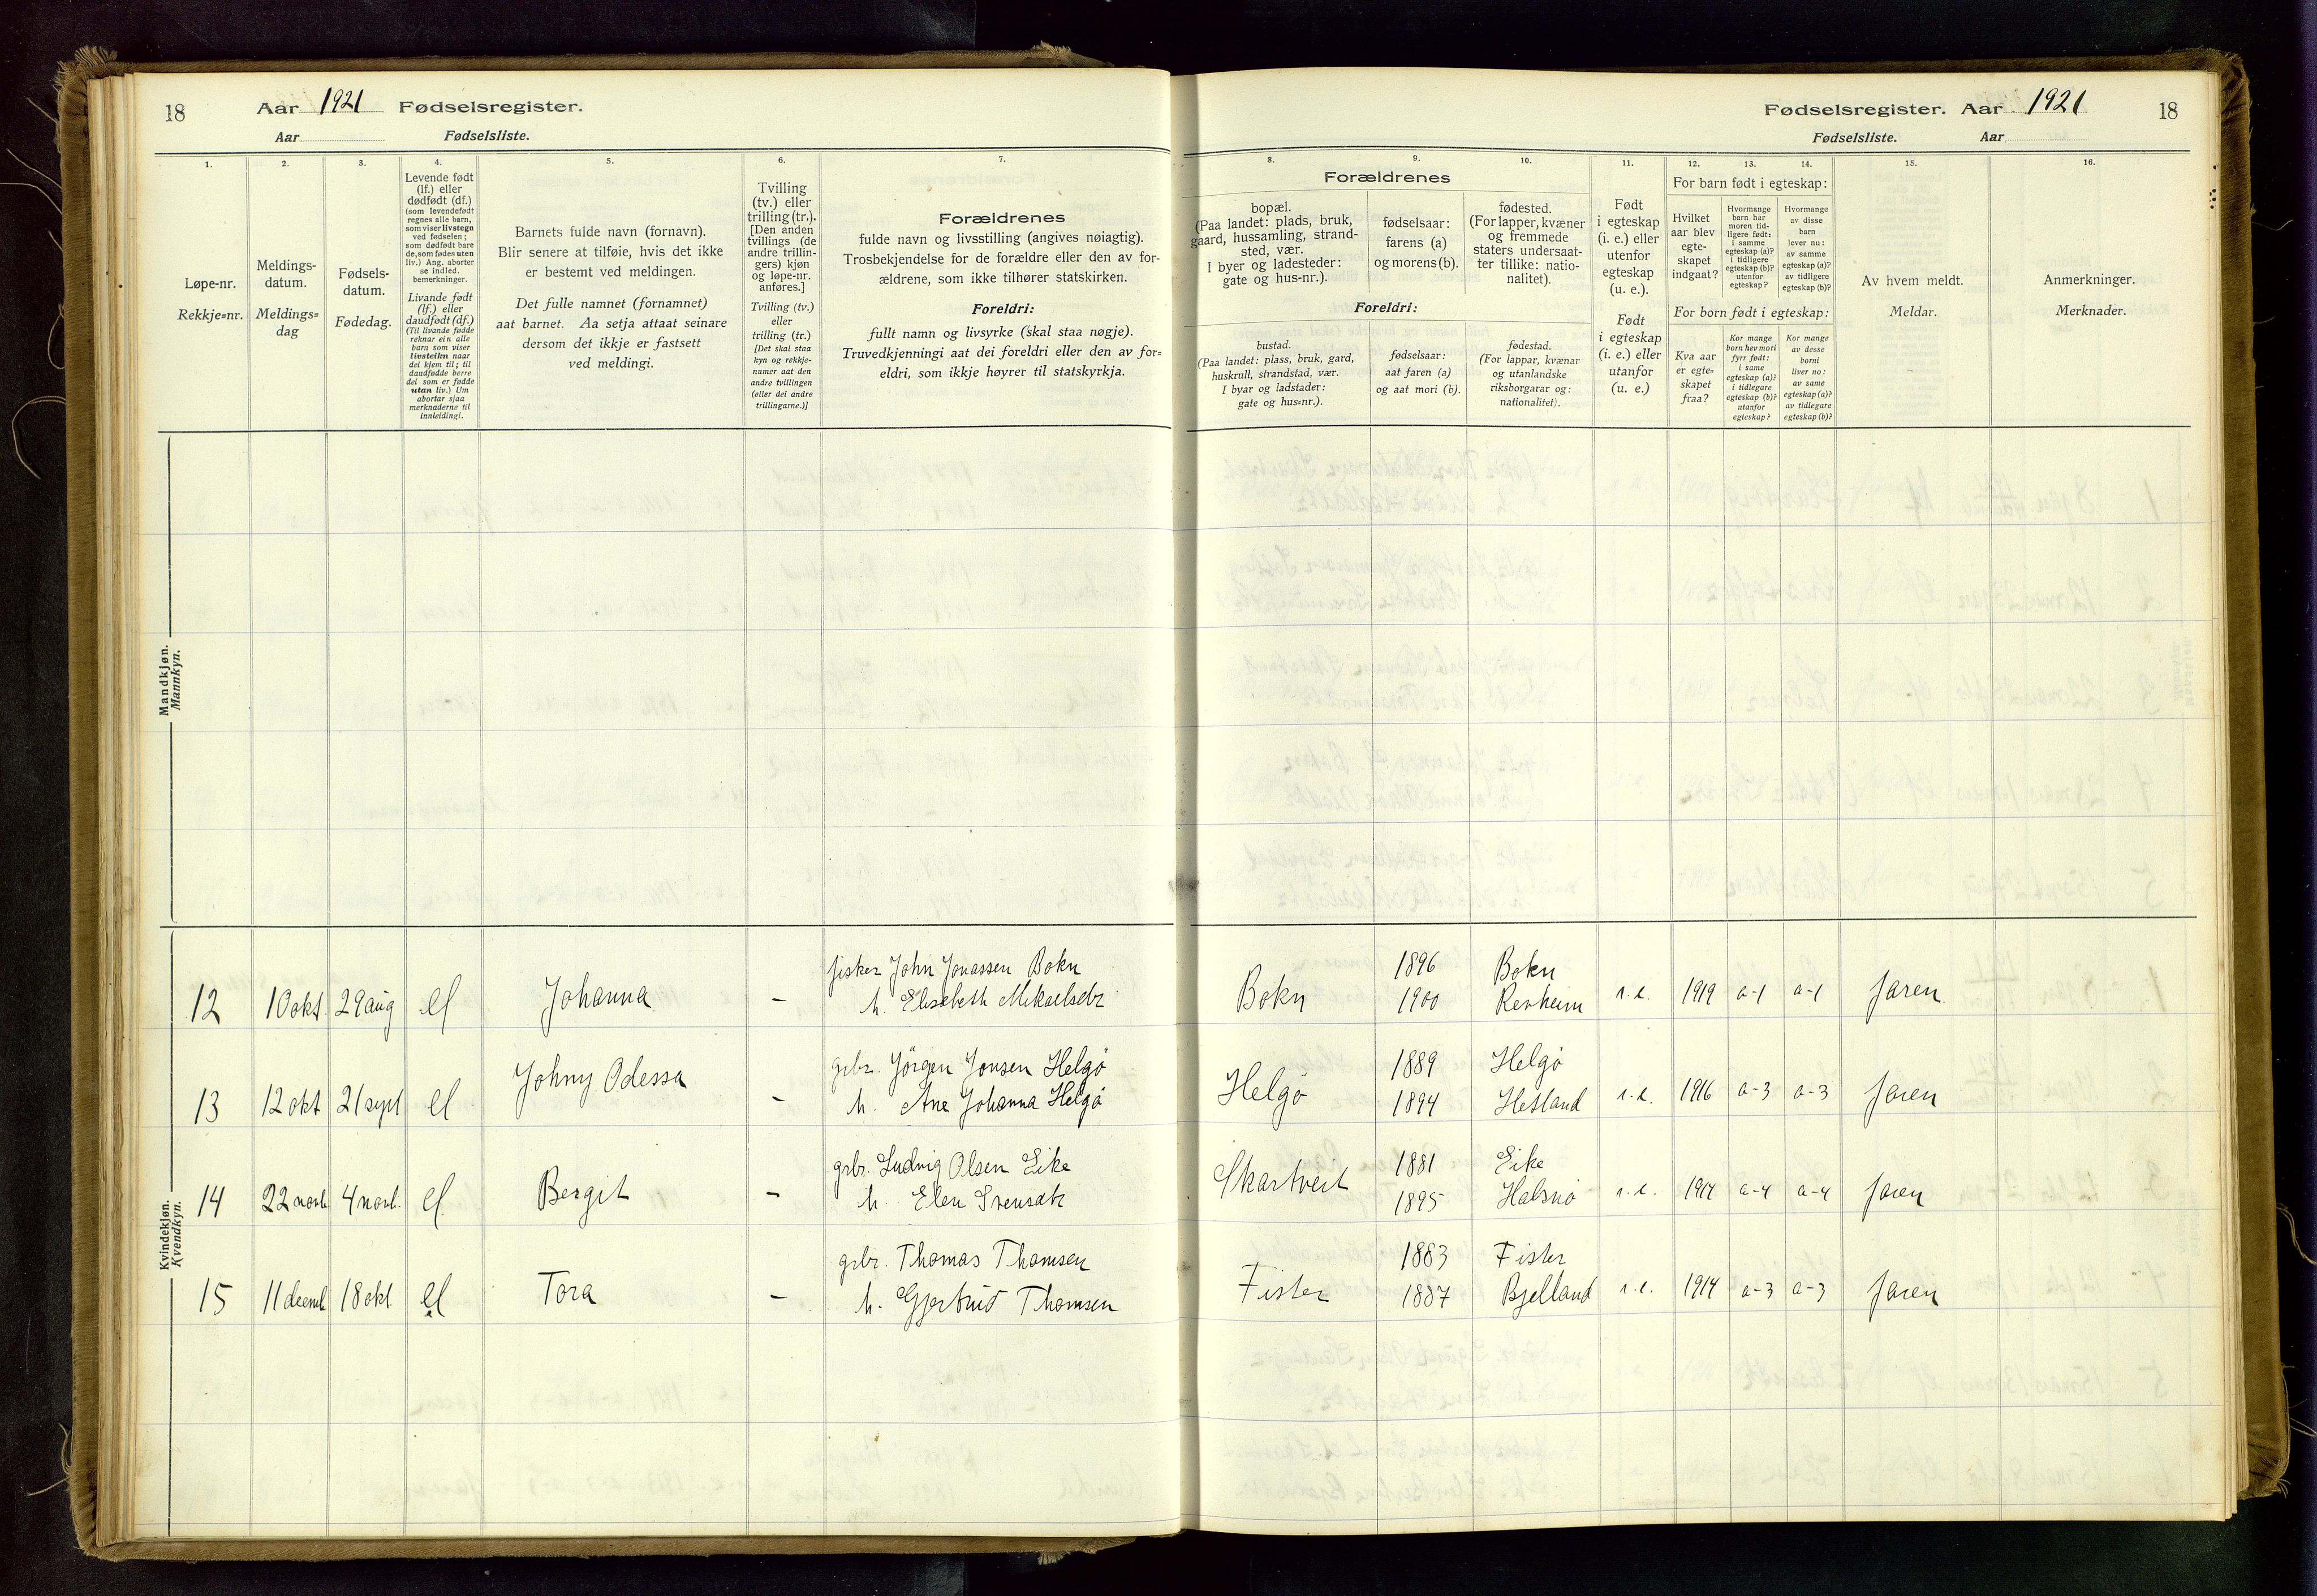 18 Aar 1921 Fødselsregister.
Aar Fødselsliste.
Fødselsregister. Aar 1921 18
Fødselsliste. Aar
1.
Løpe-nr.
Rekkje=nr.
2.
Meldings-
datum.
Meldings=
dag
3.
Fødsels-
datum.
Fødedag.
4.
Levende født
(lf.) eller
dødfødt (df.)
(som levendefødt
regnes alle barn,
som viser livstegn
ved fødselen;
som dødfødt bare
de, som fødes uten
liv.) Ang. aborter
se indled.
bemerkninger.
Livande født
(lf.) eller
daudfødt (df.)
(Til livande fødde
reknar ein alle
barn som viser
livsteikn naar
dei kjem til; til
daudfødde berre
dei som er fødde
utan liv.) Um
abortar sjaa
merknaderne til
innleidingi.
5.
Barnets fulde navn (fornavn).
Blir senere at tilføie, hvis det ikke
er bestemt ved meldingen.
Det fulle namnet (fornamnet)
aat barnet. Aa setja attaat seinare
dersom det ikkje er fastsett
ved meldingi.
6.
Tvilling
(tv.) eller
trilling (tr.).
[Den anden
tvillings (de
andre trillin-
gers) kjøn
og løpe-nr.
anføres.]
Tvilling (tv.)
eller
trilling (tr.)
[Det skal staa
kyn og rekkje-
numer aat den
andre tvillingen
(eller dei andre
trillingarne.)]
7.
Forældrenes
fulde navn og livsstilling (angives nøiagtig).
Trosbekjendelse for de forældre eller den av for-
ældrene, som ikke tilhører statskirken.
Foreldri:
fullt namn og livsyrke (skal staa nøgje).
Truvedkjenningi aat dei foreldri eller den av for=
eldri, som ikkje høyrer til statskyrkja.
Forældrenes
8.
bopæl.
(Paa landet: plads, bruk,
gaard, hussamling, strand-
sted, vær.
I byer og ladesteder:
gate og hus-nr.).
9.
fødselsaar:
farens (a)
og morens (b).
10.
fødested.
(For lapper, kvæner
og fremmede
staters undersaat-
ter tillike: natio-
nalitet).
Foreldri:
bustad.
(Paa landet: plass, bruk, gard,
huskrull, strandstad, vær.
I byar og ladstader:
gate og hus=nr.).
fødselsaar:
aat faren (a)
og aat mori (b).
fødestad.
(For lappar, kvænar
og utanlandske
riksborgarar og:
nationalitet).
11.
Født
i egteskap
(i. e.) eller
utenfor
egteskap
(u. e.).
Født
i egteskap
(i. e.) eller
utanfor
(u. e.)
12. 13. 14.
For barn født i egteskap:
Hvilket
aar blev
egte-
skapet
indgaat?
Hvormange
barn har
moren tid-
ligere født:
i samme
egteskap (a)?
i tidligere
egteskap (b)?
utenfor
egteskap?
Hvormange
av disse
barn
lever nu:
av samme
egteskap (a)?
av tidligere
egteskap (b)?
For born født i egteskap:
Kva aar
er egte=
skapet
fraa?
Kor mange
born hev mori
fyrr født:
i same
egteskap (a)?
i tidlegare
egteskap (b)?
utanfor
egteskap?
Kor mange
av desse
borni
liver no:
av same
egteskap (a)?
av tidlegare
egteskap (b)?
15.
Av hvem meldt.
Meldar.
16.
Anmerkninger.
Merknader.
Mandkjøn.
Mannkyn.
Kvindekjøn.
Kvendkyn.
fisker John Jonassen Bokn 1896 Bokn
12 10 okt 29 aug lf Johanna - h. Elisebeth Mikaelsdtr Bokn 1900 Renheim i.e. 1919 a-1 a-1 faren
gbr. Jörgen Jonsen Helgö 1889 Helgö
13 12 okt 21 sept lf Johny Odessa - h. Ane Johanna Helgö Helgö 1894 Hetland i.e. 1916 a-3 a-3 faren
gbr. Ludvig Olsen Eike 1881 Eike
14 22 novb 4 novb. lf Bergit - h. Elen Svensdtr Skartveit 1895 Halsnö i.e. 1914 a-4 a-4 faren
gbr. Thomas Thomsen 1883 Fister
15 11 decemb 18 okt lf Tora - h. Gjertrud Thomsen Fister 1887 Bjelland i.e. 1914 a-3 a-3 faren